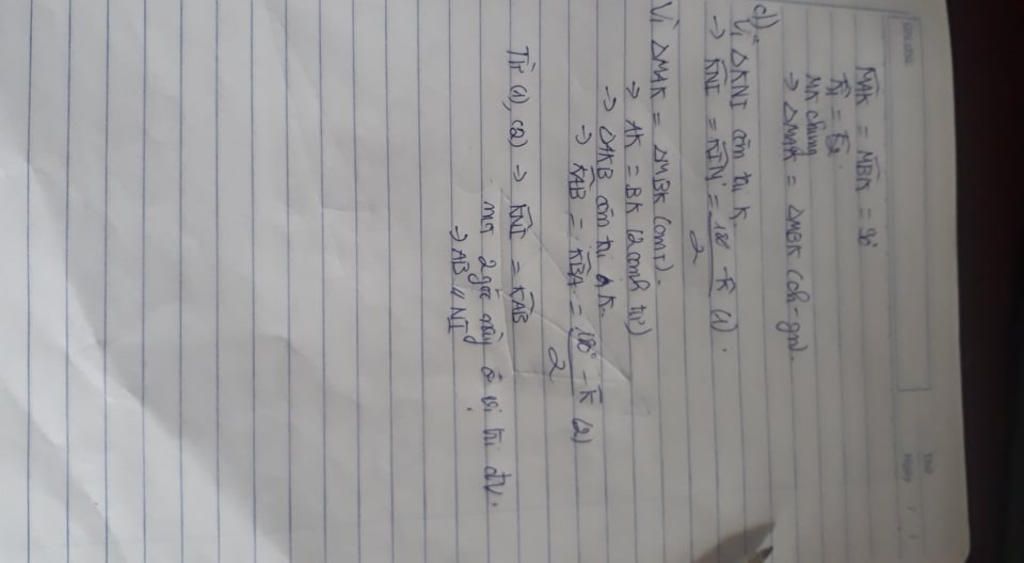 MAK = MBK = 90°
K1 = K2
MK chung
→ ΔMAK = ΔMBK (ch-gn).
d) Vì ΔKNI cân tại K
→ KNI = KIN = 180° - K / 2 (1).
Vì ΔMAK = ΔMBK (cmt).
→ AK = BK (2 cạnh tư)
→ ΔAKB cân tại K
→ KAB = KBA = 180° - K / 2 (2)
Từ (1), (2) → KNI = KAB
mà 2 góc này ở vị trí đv.
→ AB // NI